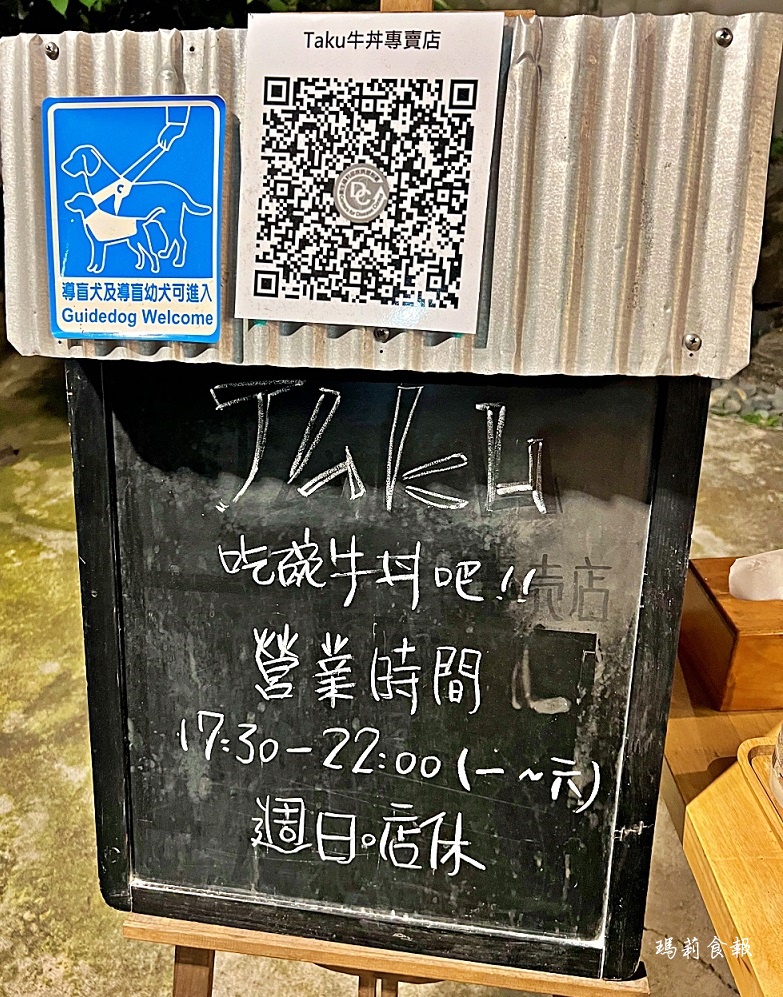 Taku牛丼專賣店
導盲犬及導盲幼犬可進入
Guidedog Welcome
Taku
吃碗牛丼吧!!
营業時間
17:30-22:00(一~六)
週日。店休
瑪莉食報